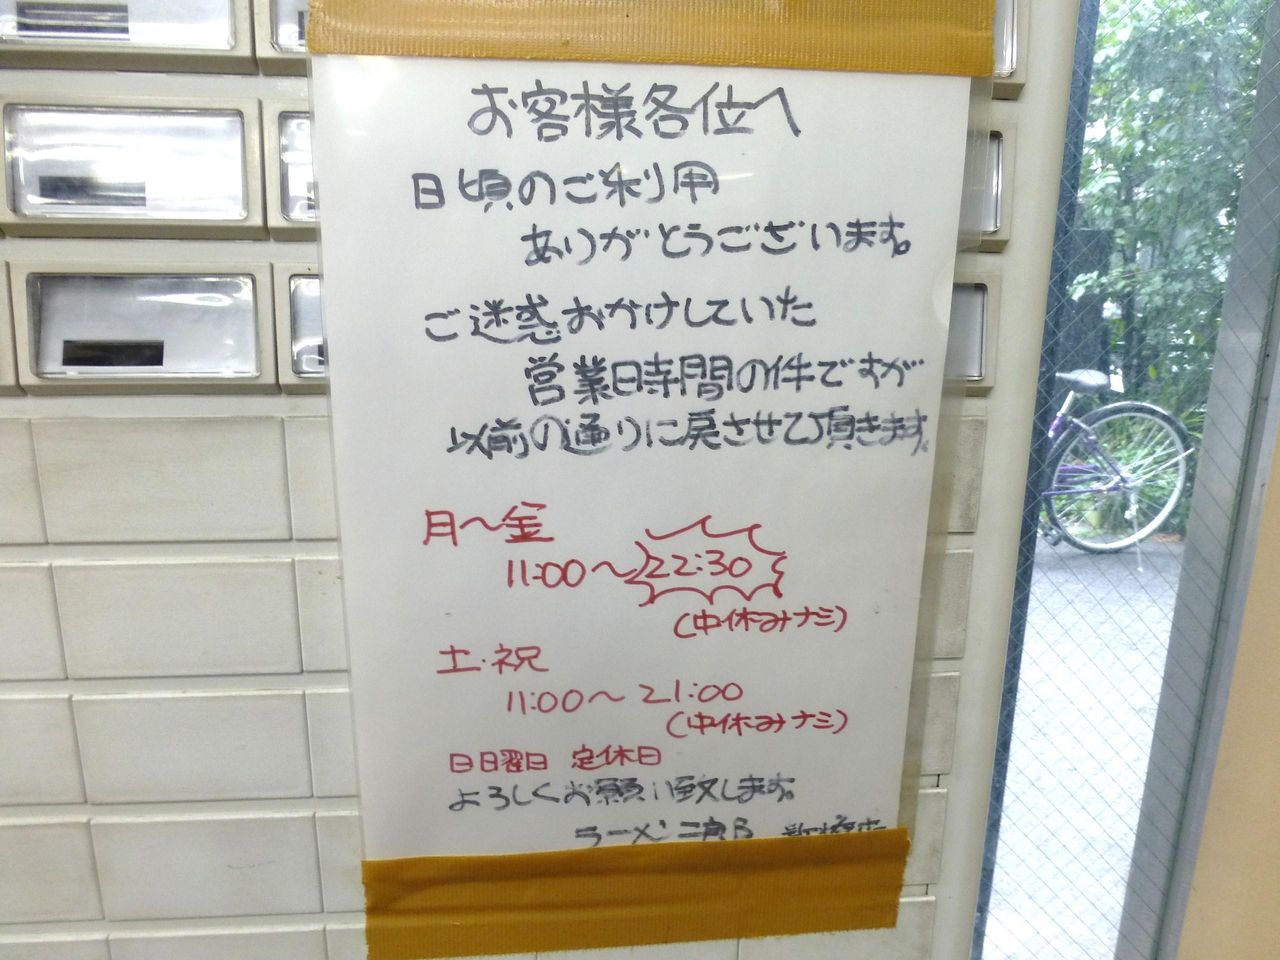 お客様各位へ
日頃のご利用
ありがとうございます。
ご迷惑おかけしていた
営業日時間の件ですが
以前の通りに戻させて頂きます。
月〜金
11:00〜22:30
(中休みナシ)
土・祝
11:00〜21:00
(中休みナシ)
日日曜日 定休日
よろしくお願い致します。
ラーメン二郎